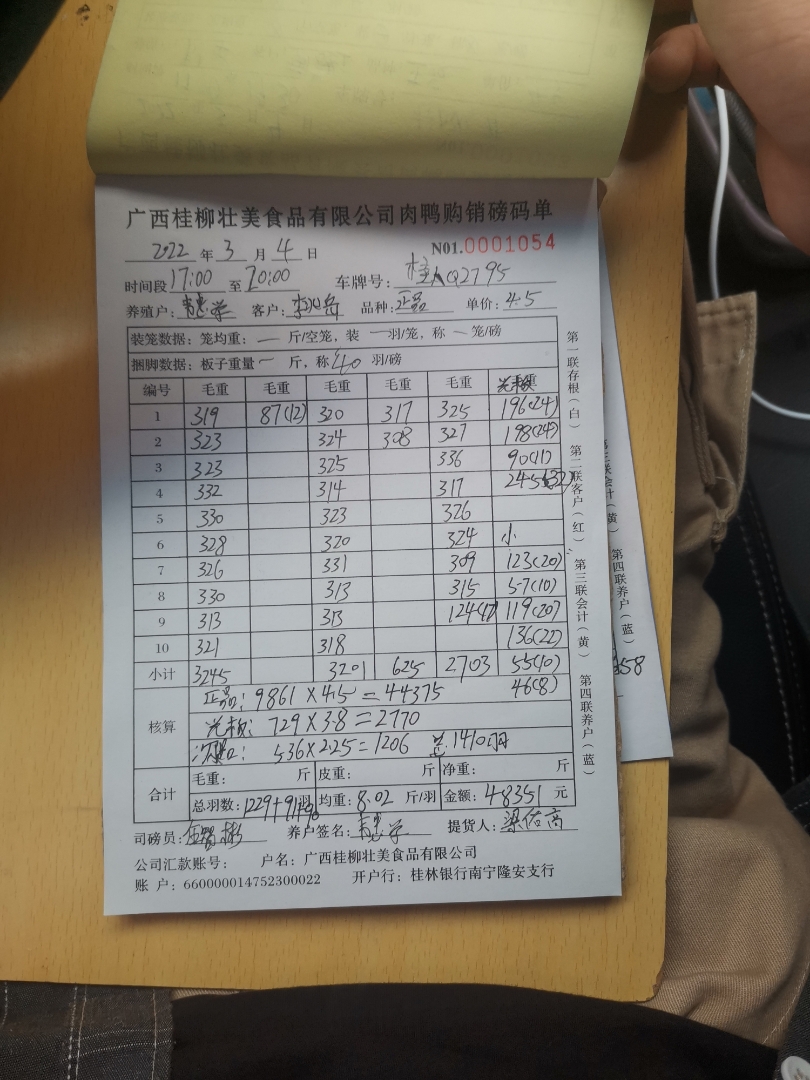 广西桂柳壮美食品有限公司肉鸭购销磅码单
2022 年 3 月 4 日 N01.0001054
时间段 17:00 至 20:00 车牌号: 桂AQ2795
养殖户: 客户: 品种: 正品 单价: 4.5
装笼数据: 笼均重: — 斤/空笼, 装 — 羽/笼, 称 — 笼/磅
捆脚数据: 板子重量 — 斤, 称 40 羽/磅
编号 毛重 毛重 毛重 毛重 毛重 毛重
1 319 87(12) 320 317 325 196(24)
2 323 324 308 327 198(24)
3 323 325 336 90(11)
4 332 314 317 245(32)
5 330 323 326
6 328 320 324 小
7 326 331 309 123(20)
8 330 313 315 57(10)
9 313 313 124(17) 119(20)
10 321 318 136(22)
小计 3245 3201 625 2703 55(10)
46(8)
核算 正品: 9861×4.5=44375
729×3.8=2770
536×2.25=1206 1410羽
合计 毛重: 斤 皮重: 斤 净重: 斤
总羽数: 1229+91+90 羽 均重: 8.02 斤/羽 金额: 48351 元
司磅员: 养户签名: 提货人: 梁佑高
公司汇款账号: 户名: 广西桂柳壮美食品有限公司
账 户: 660000014752300022 开户行: 桂林银行南宁隆安支行
第一联存根(白) 第二联客户(红) 第三联会计(黄) 第四联养户(蓝)
第四联养户(蓝)
358